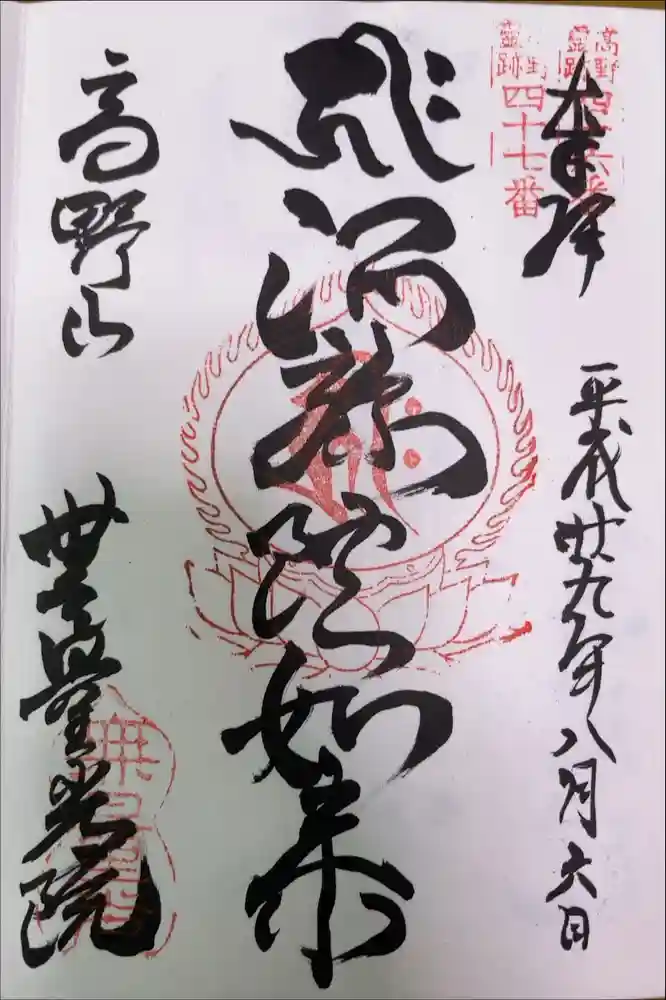 高野
霊跡
四十六番
霊跡
四十七番
奉拝
平成廿九年八月六日
阿弥陀如来
高野山
無量光院